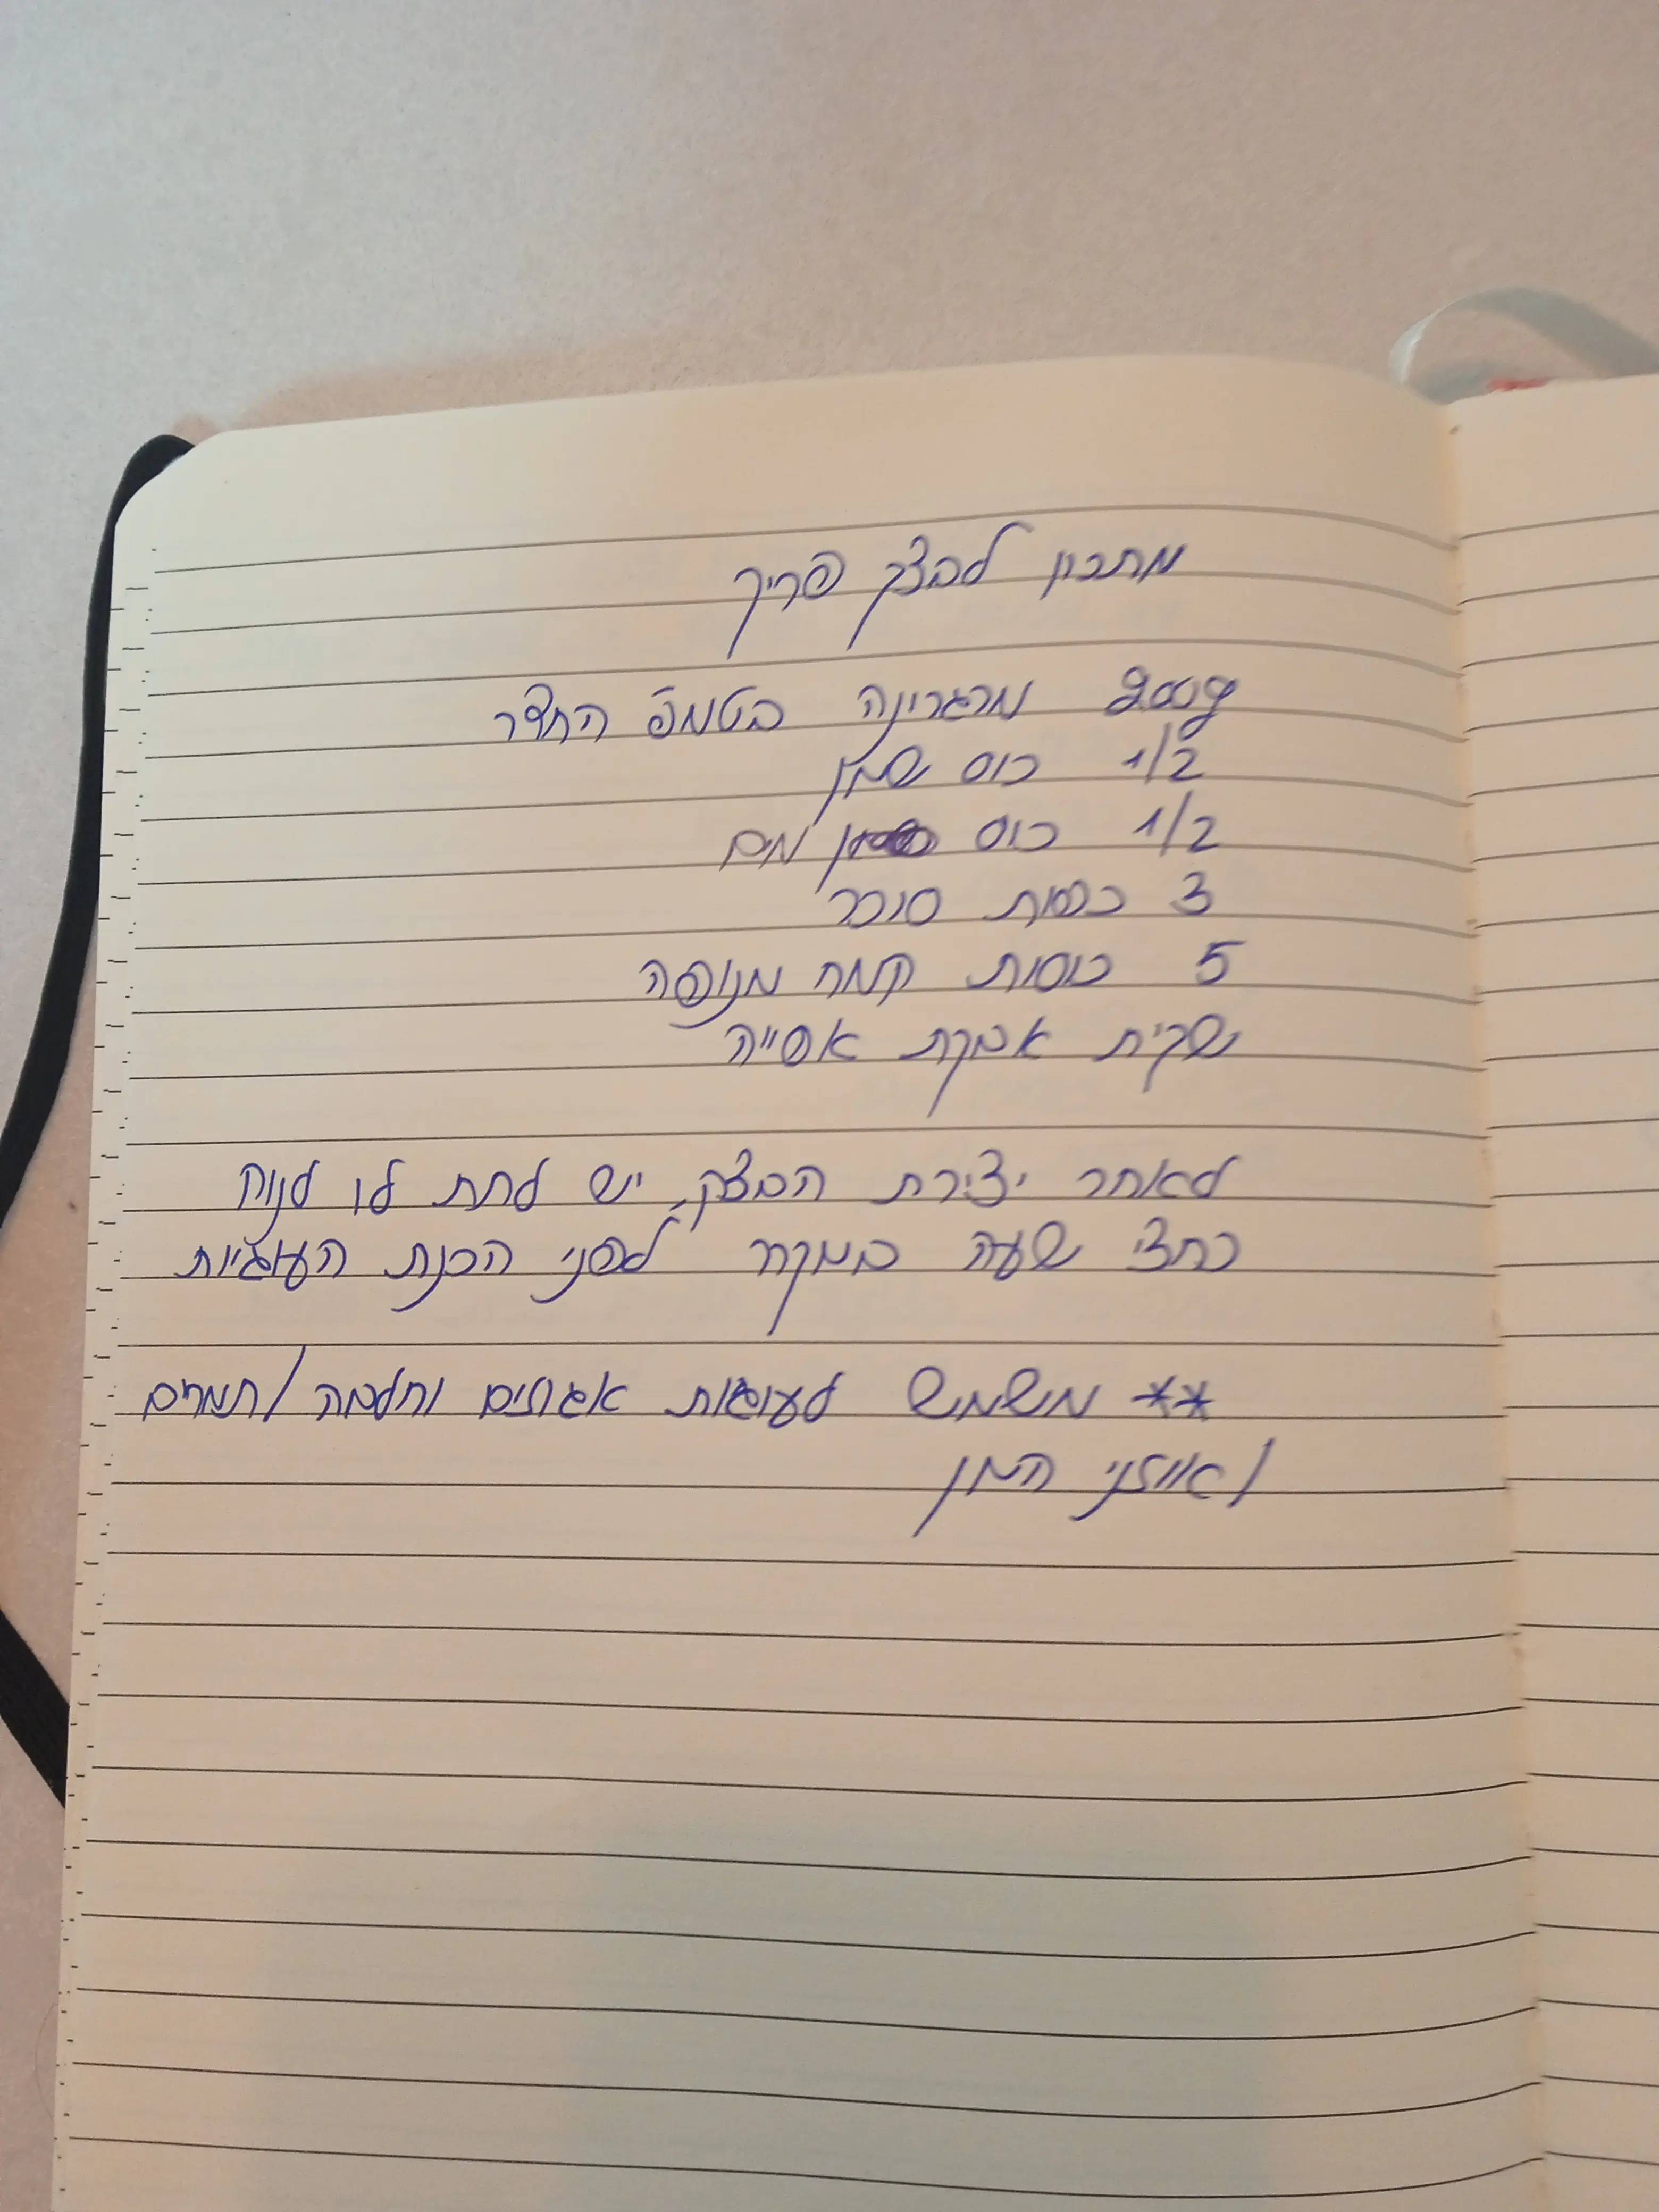 מתכון לבצק פריך
200g מרגרינה בטמפ' החדר
1/2 כוס שמן
1/2 כוס מים
3 כוסות סוכר
5 כוסות קמח מנופה
שקית אבקת אפייה
לאחר יצירת הבצק, יש לתת לו לנוח
כחצי שעה במקרר לפני הכנת העוגיות
** משמש לעוגות אגוזים וחלבה/תמרים
/אוזני המן